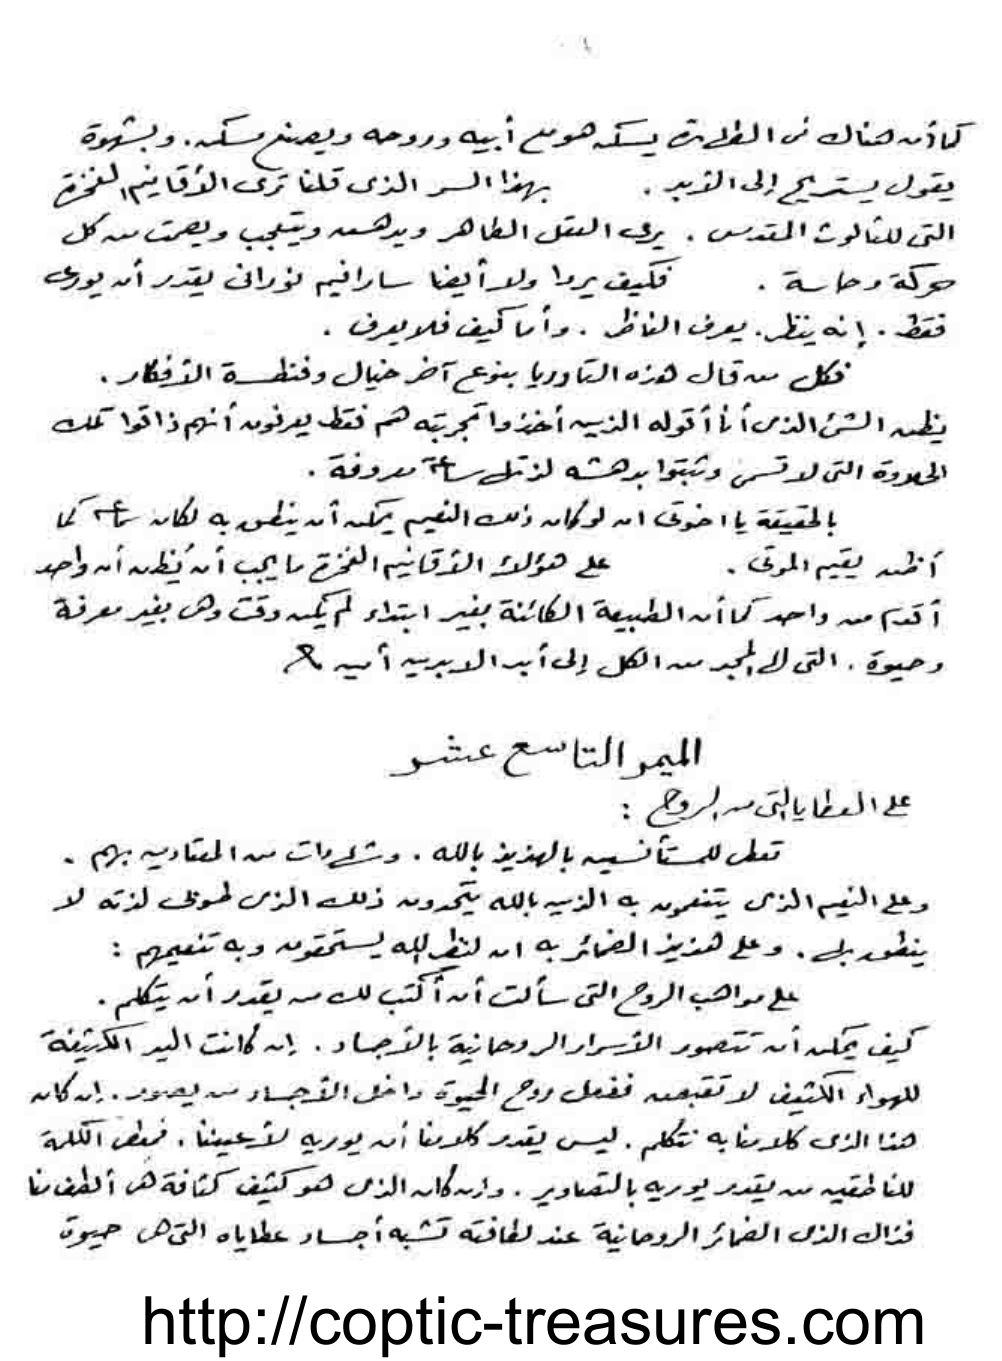 كما أنه هناك في الطهرة يسكن هو مع أبيه وروحه ويصنع مسكن. وبشهوة
يقول يستريح إلى الأبد . بهذا السر الذى قلنا ترى الأقانيم الفخرة
التى للثالوث المقدس . يرى العقل الطاهر ويدهش ويتعجب ويصمت من كل
حركة وحاسة . فكيف يرى ولا أيضا سارافيم نورانى يقدر أن يورى
فقط . إنه ينظر . يعرف الناظر . وأما كيف فلا يعرف .
فكل من قال هذه التاوريا بنوع آخر خيال وفنطسة الأفكار .
يظن الشئ الذى أنا أقوله الذين أخذوا تجربته هم فقط يعرفون أنهم ذاقوا تلك
الحلاوة التى لا تسمى وثبتوا بدهشه لذلك ساعة معروفة .
بالحقيقة يا اخوتى ان لو كان ذلك النعيم يمكن أن ينطق به لكان كما
أظن يقيم الموتى . على هؤلاء الأقانيم الفخرة ما يجب أن يُظن أن واحد
أقدم من واحد كما أن الطبيعة الكائنة بغير ابتداء لم يكن وقت وهى بغير معرفة
وحيوة . التى لها المجد من الكل إلى أبد الابدين أمين
الميمر التاسع عشر
على العطايا التى من الروح :
تعطى للمستأنسين بالهذيذ بالله . من المعتادين بهم .
وعلى النعيم الذى يتنعمون به الذين بالله يتحدون ذلك الذى لذته لا
ينطق بها . وعلى هذيذ الضمائر به ان لنظر الله يستحقون وبه تنعيمهم :
على مواهب الروح التى سألت أن أكتب لك من يقدر أن يتكلم .
كيف يمكن أن تتصور الأسرار الروحانية بالأجساد . إن كانت اليد الكثيفة
للهواء الكثيف لا تقبض ففعل روح الحيوة داخل الأجساد من يصور . إن كان
هذا الذى كلامنا به نتكلم . ليس يقدر كلامنا أن يوريه لأعيننا . فمعطى الكلمة
للناطقين من يقدر يوريه بالتصاوير . وان كان الذى هو كثيف كثافة هى ألطف منا
فذاك الذى الضمائر الروحانية عند لطافته تشبه أجساد عطاياه التى هى حيوة
http://coptic-treasures.com